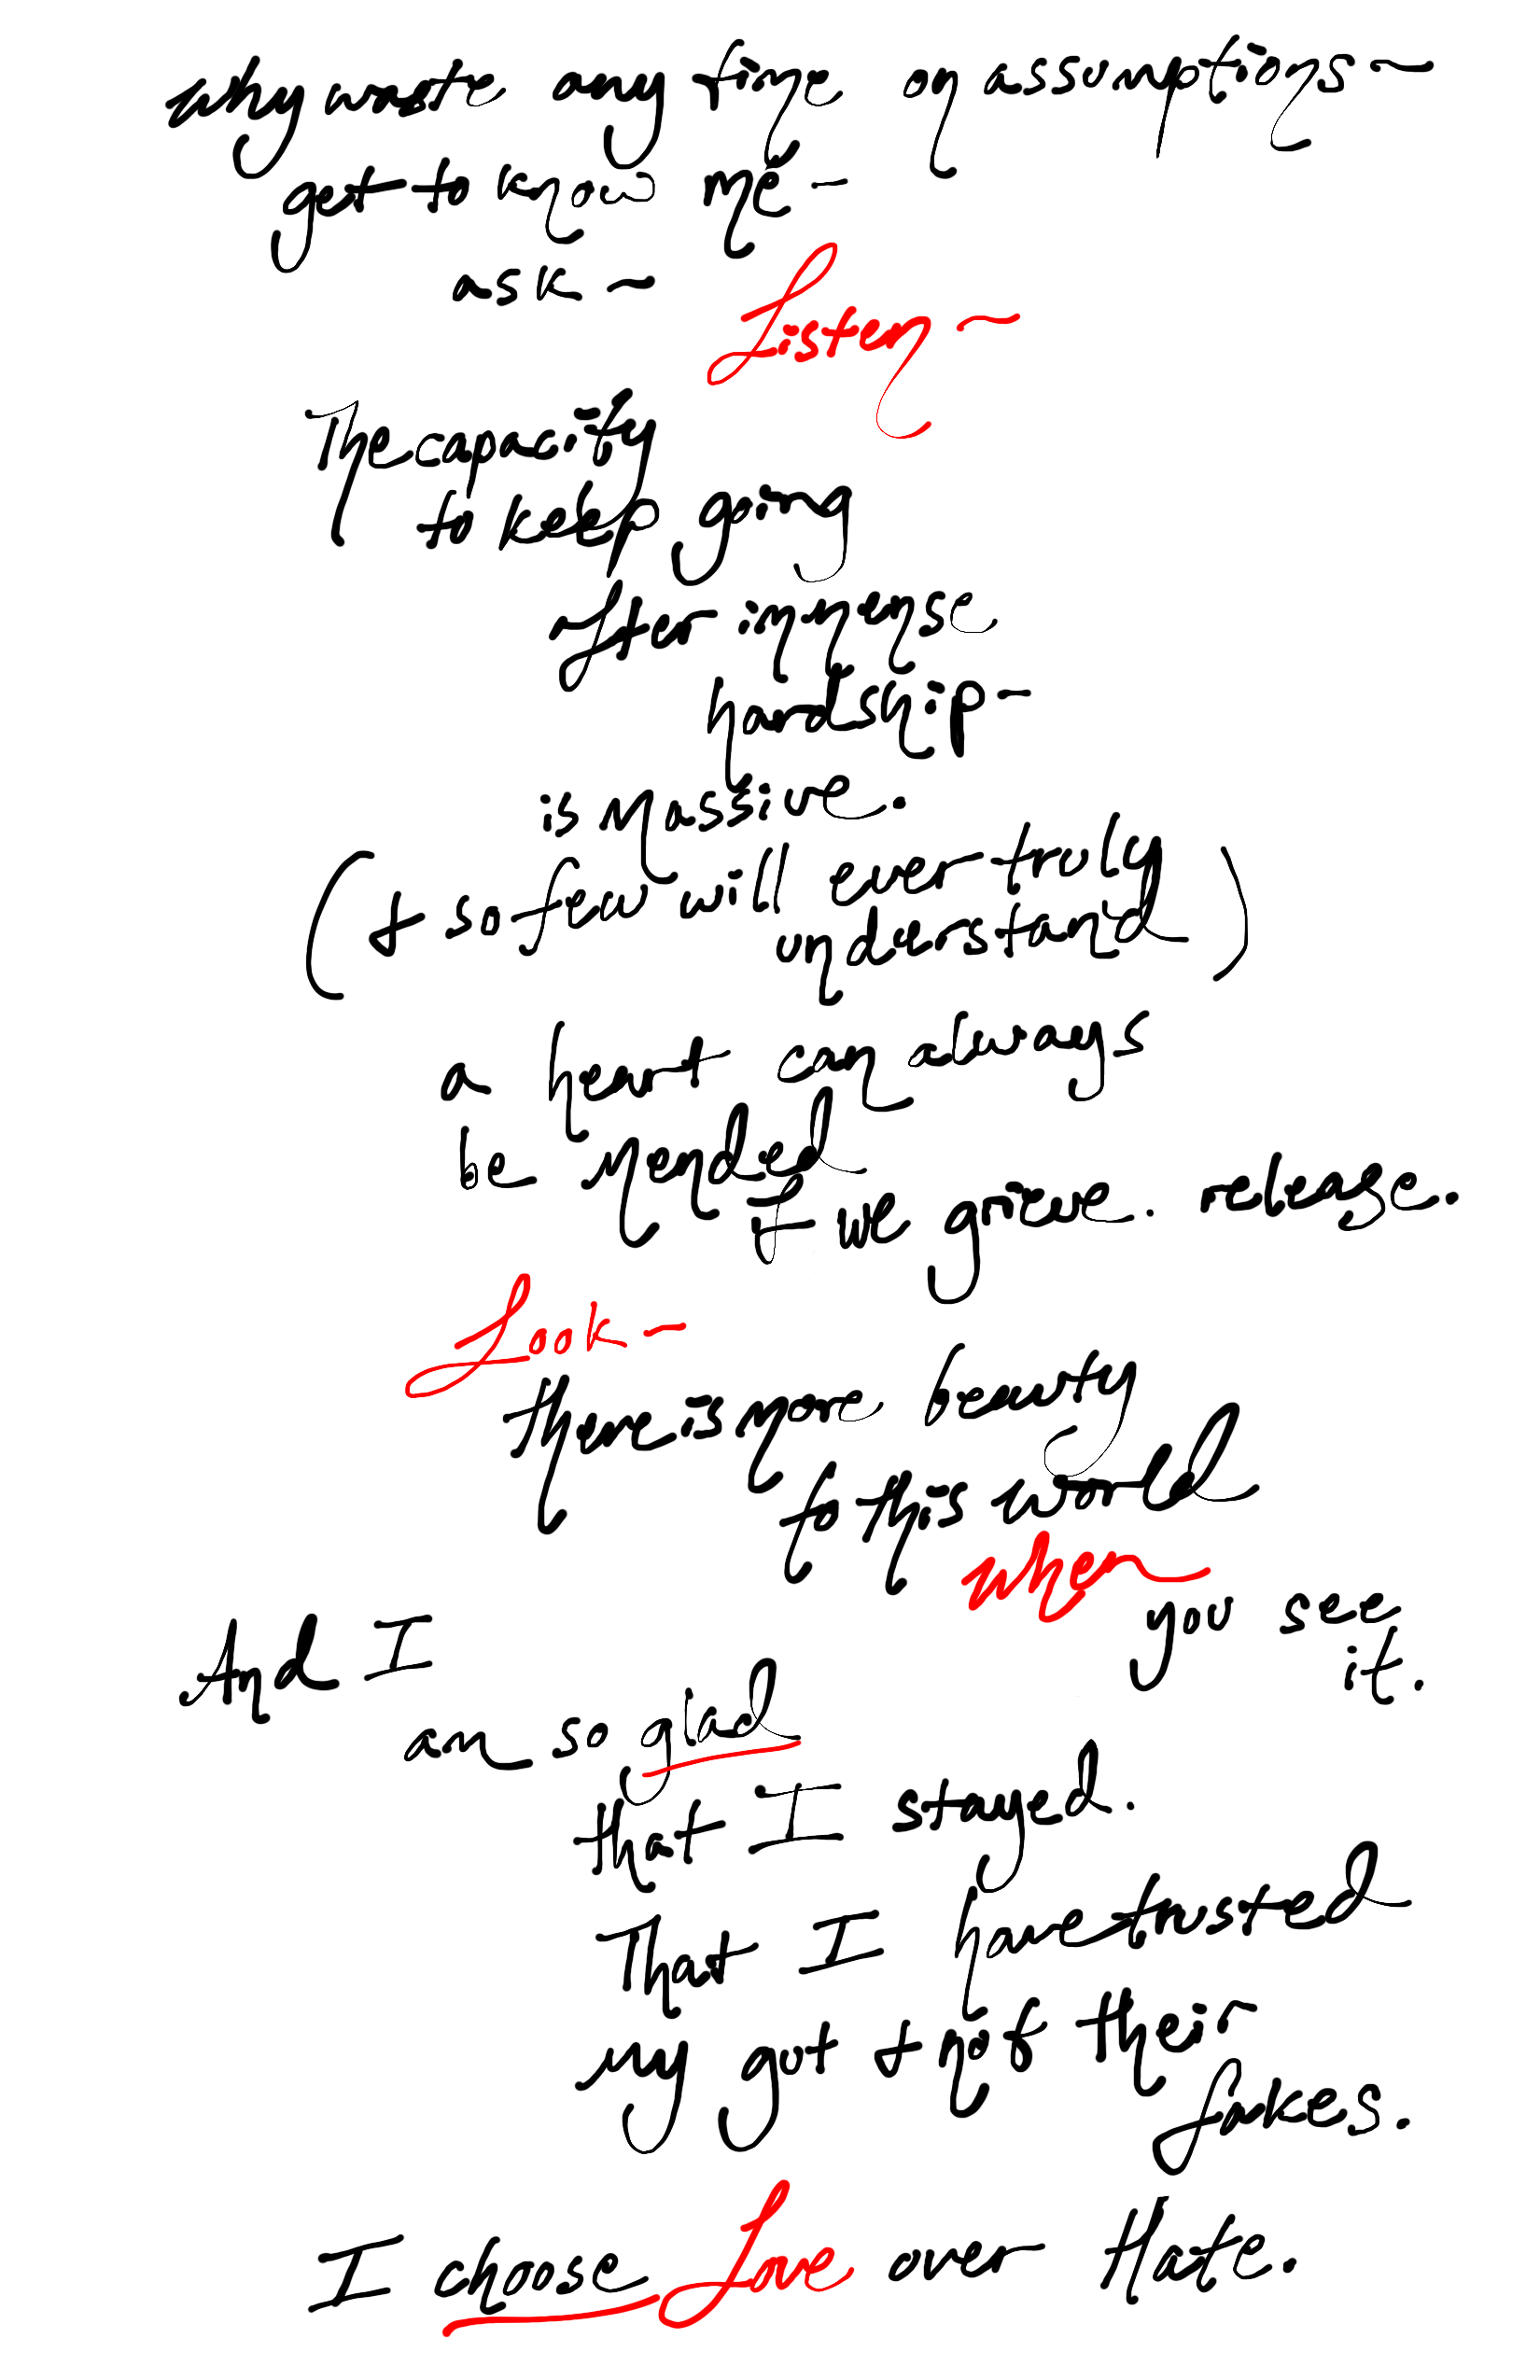 why waste any time on assumptions-
get to know me-
ask-
Listen-
The capacity
to keep going
after immense
hardship-
is massive.
(& so few will ever truly
understand)
a heart can always
be mended
if we grieve. release.
Look-
there is more beauty
to this world
when
you see
it.
And I
am so glad
that I stayed.
That I have trusted
my gut & not their
fakes.
I choose Love over Hate.